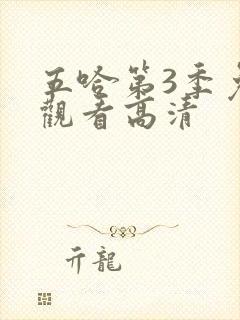 五哈第3季免
觀看高清
亓龍